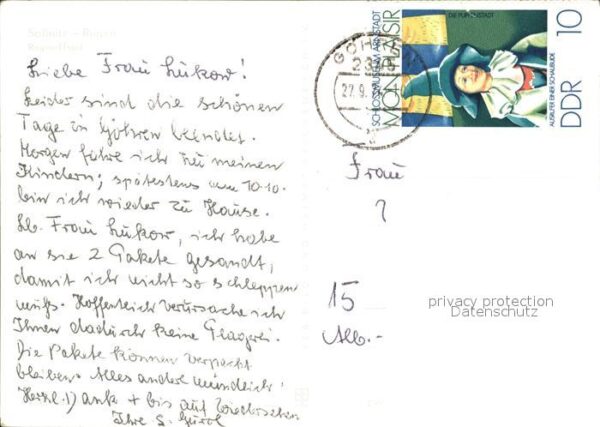 Sellin - Rügen
Liebe Frau Lukow!
Leider sind die schönen
Tage in Göhren beendet.
Morgen fahre ich zu meinen
Kindern; spätestens am 10.10.
bin ich wieder zu Hause.
Lb. Frau Lukow, ich habe
an sie 2 Pakete gesandt,
damit ich nicht so schleppen
muß. Hoffentlich verursache ich
Ihnen dadurch keine Plagerei.
Die Pakete können verpackt
bleiben. Alles andere mündlich!
Herzl. Dank + bis auf Wiedersehen
Ihre S.
GÖHREN
27.9.
SCHLOSSMUSEUM ARNSTADT
MON PLAISIR
DIE PUPPENSTADT
AUSRUFER EINER SCHAUBUDE
DDR 10
Frau
?
15
Alb.-
privacy protection
Datenschutz